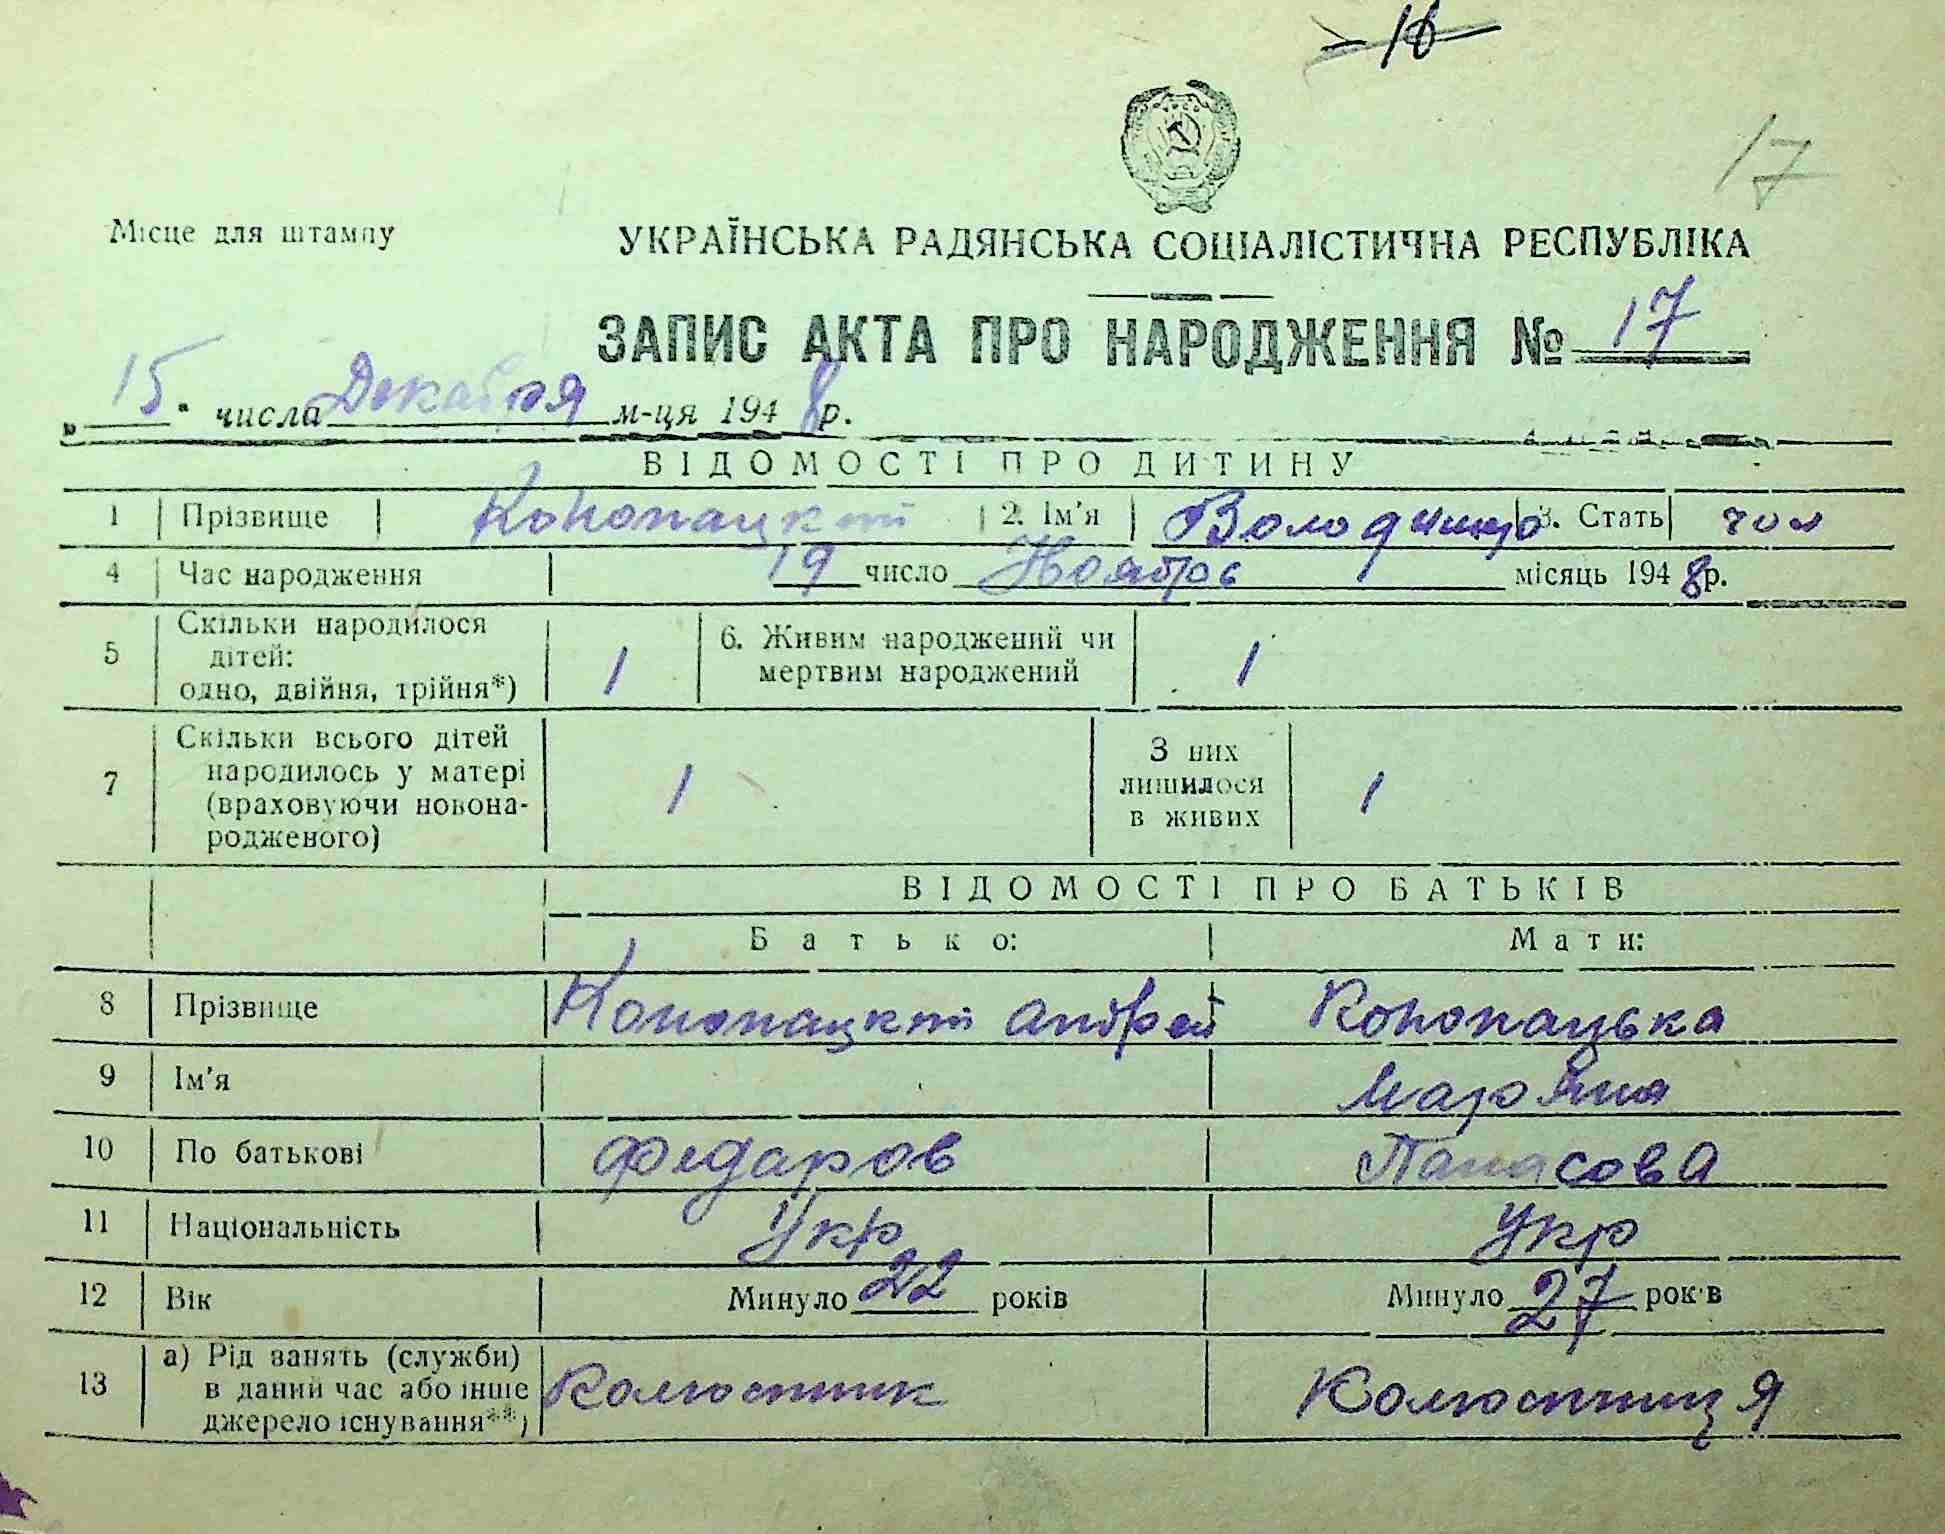 16
17
Місце для штампу
УКРАЇНСЬКА РАДЯНСЬКА СОЦІАЛІСТИЧНА РЕСПУБЛІКА
ЗАПИС АКТА ПРО НАРОДЖЕННЯ № 17
„15" числа Декабря м-ця 1948 р.
ВІДОМОСТІ ПРО ДИТИНУ
1 Прізвище Конопацкий 2. Ім'я Володимир 3. Стать чол
4 Час народження 19 число Ноябрь місяць 1948 р.
5 Скільки народилося дітей: одно, двійня, трійня*) 1 6. Живим народжений чи мертвим народжений 1
7 Скільки всього дітей народилось у матері (враховуючи новонародженого) 1 З них лишилося в живих 1
ВІДОМОСТІ ПРО БАТЬКІВ
Батько: Мати:
8 Прізвище Конопацкий Андрей Конопацька
9 Ім'я Марояна
10 По батькові Федаров Панасова
11 Національність Укр Укр
12 Вік Минуло 22 років Минуло 27 років
13 а) Рід занять (служби) в даний час або інше джерело існування**) Колгоспник Колгоспниця